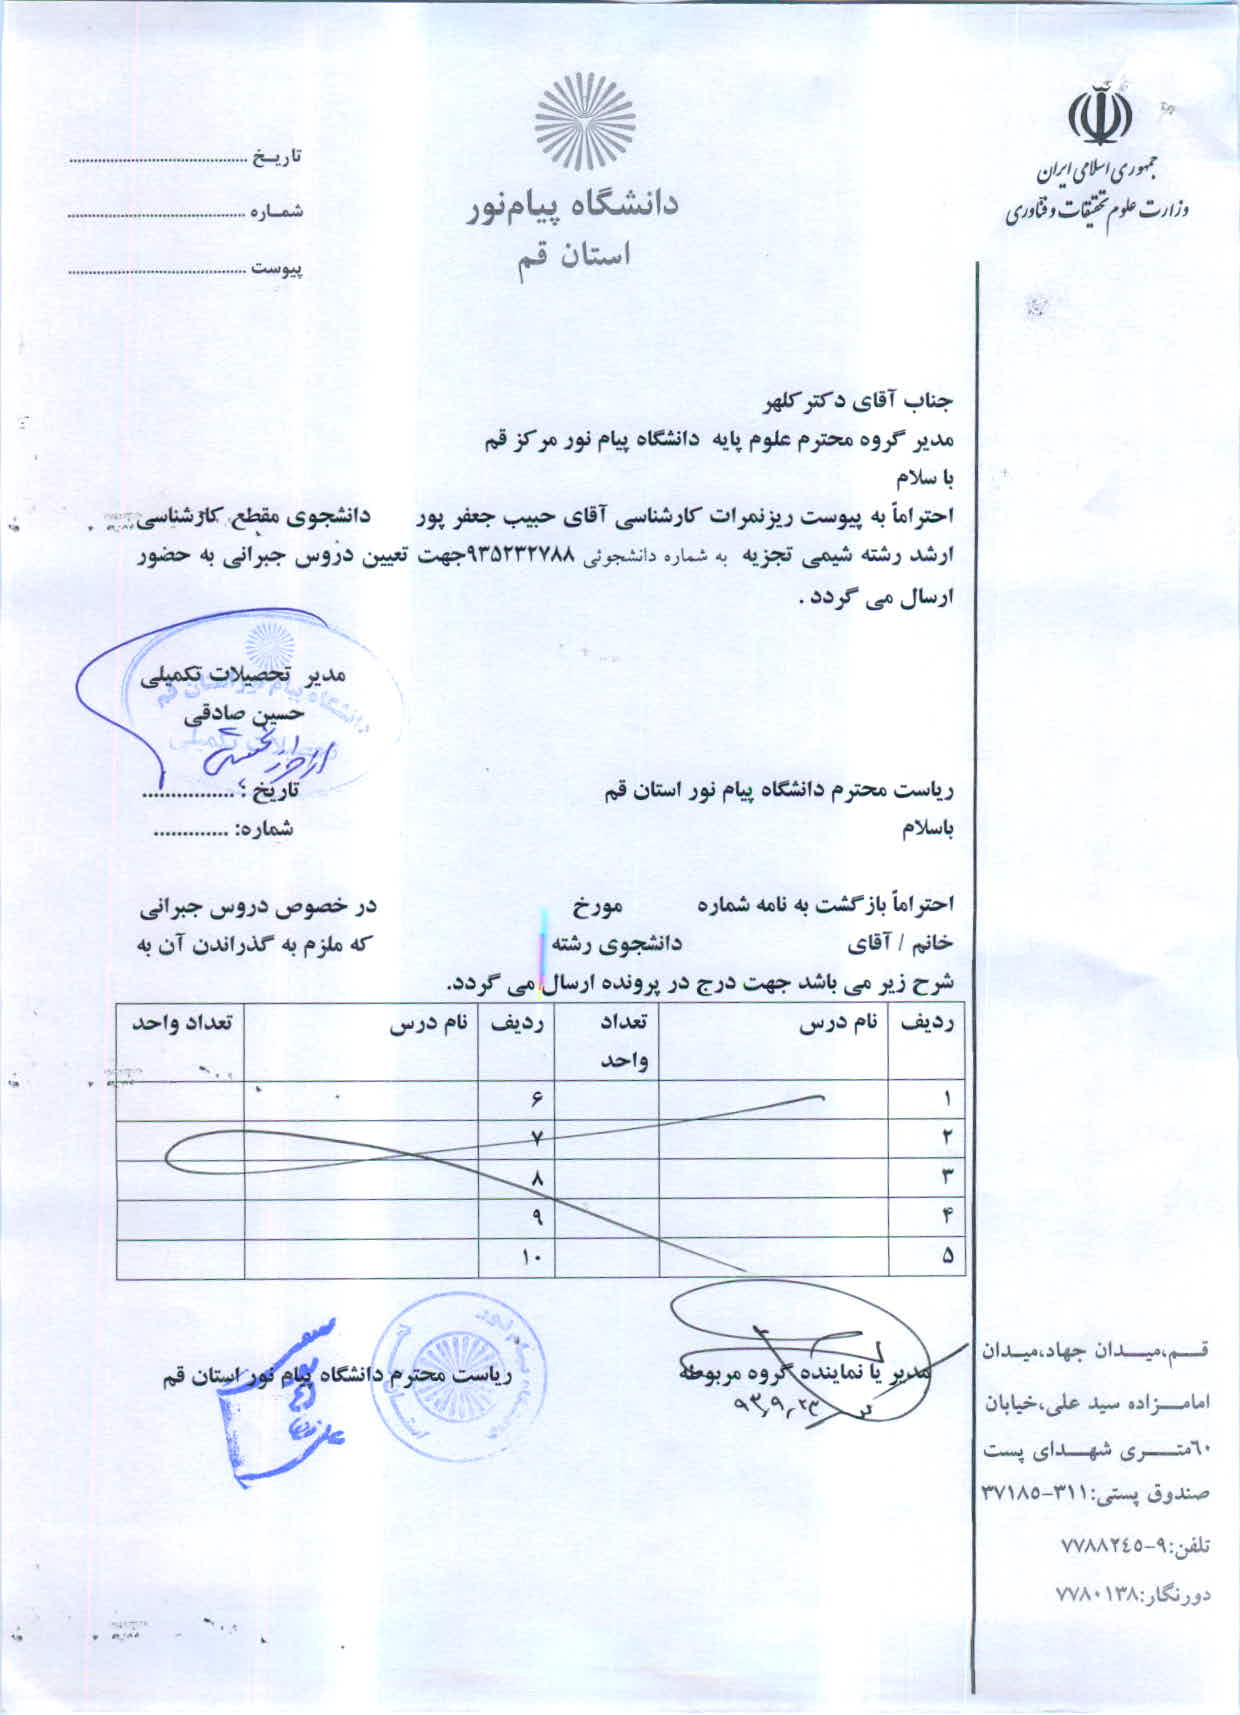 جمهوری اسلامی ایران
وزارت علوم تحقیقات و فناوری
دانشگاه پیام‌نور
استان قم
تاریـخ ............................................
شمـاره ............................................
پیوست ............................................
جناب آقای دکتر کلهر
مدیر گروه محترم علوم پایه دانشگاه پیام نور مرکز قم
با سلام
احتراماً به پیوست ریزنمرات کارشناسی آقای حبیب جعفر پور دانشجوی مقطع کارشناسی
ارشد رشته شیمی تجزیه به شماره دانشجوئی ۹۳۵۲۳۲۷۸۸جهت تعیین دروس جبرانی به حضور
ارسال می گردد .
مدیر تحصیلات تکمیلی
حسین صادقی
تاریخ : ................
شماره: .............
ریاست محترم دانشگاه پیام نور استان قم
باسلام
احتراماً بازگشت به نامه شماره مورخ در خصوص دروس جبرانی
خانم / آقای دانشجوی رشته که ملزم به گذراندن آن به
شرح زیر می باشد جهت درج در پرونده ارسال می گردد.
ردیف نام درس تعداد واحد ردیف نام درس تعداد واحد
۱ ۶
۲ ۷
۳ ۸
۴ ۹
۵ ۱۰
مدیر یا نماینده گروه مربوطه
۹۳٫۹٫۲۳
ریاست محترم دانشگاه پیام نور استان قم
قــم،میـــدان جهاد،میـدان
امامـــزاده سید علی،خیابان
۶۰متـــری شهـــدای پست
صندوق پستی:۳۱۱-۳۷۱۸۵
تلفن:۹-۷۷۸۸۲۴۵
دورنگار:۷۷۸۰۱۳۸